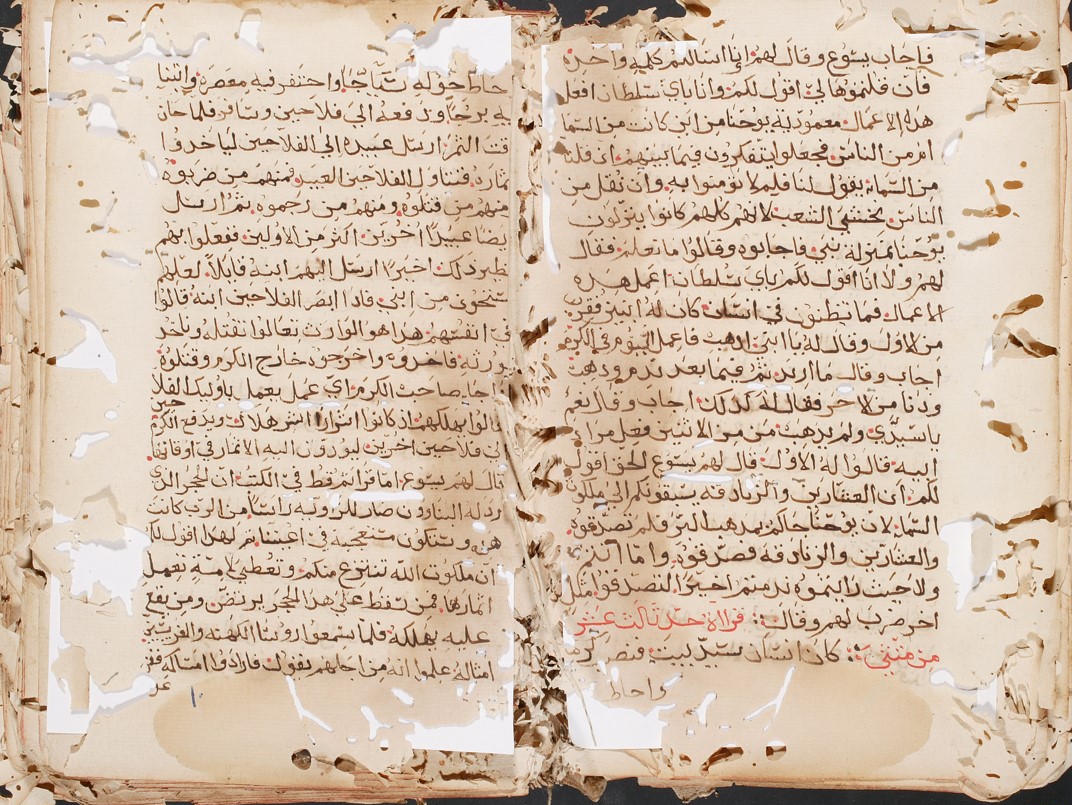 فاجاب يسوع وقال لهم وانا اسالكم كلمه واحده
فان قلتموها لي اقول لكم وانا باي سلطان افعل
هذه الاعمال معموديه يوحنا من اين كانت من السما
ام من الناس فجعلوا يتفكرون فيما بينهم ان قلنا
من السماء يقول لنا فلم لا تومنوا به وان نقل من
الناس نخشي الشعب لانهم كلهم كانوا ينزلون
يوحنا بمنزلة نبي واجابوه وقالوا ما نعلم فقال
لهم ولا انا اقول لكم باي سلطان اعمل هذه
الاعمال فما تظنون في انسان كان له ابنين فقرب
من الاول وقال له يا ابني اذهب فاعمل اليوم في الكرم
اجاب وقال ما اريد ثم فيما بعد ندم وذهب
ودنا من الاخر فقال له كذلك اجاب وقال نعم
يا سيدي ولم يذهب من من الاثنين فعل مراد
ابيه قالوا له الاول قال لهم يسوع الحق اقول
لكم ان العشارين والزنادقه يسبقونكم الي ملكوت
السما لان يوحنا جاكم بمذهب البر فلم تصدقوه
والعشارين والزنادقه فصدقوه واما انتم
ولا حيث رايتموه ندمتم اخيرا لتصدقوا مثل
اخر ضرب لهم وقال قراة حد ثالث عشر
من متي كان انسان سيد بيت فنصب كرم
واحاط
حاط حوله سياجا واحتفر فيه معصره وابتنا
فيه برجا ودفعه الي فلاحين وسافر فلما حان
وقت الثمر ارسل عبيده الى الفلاحين لياخذوا
ثماره فتناول الفلاحين العبيد فمنهم من ضربوه
ومنهم من قتلوه ومنهم من رجموه ثم ارسل
ايضا عبيدا اخرين اكثر من الاولين ففعلوا بهم
نظير ذلك اخيرا ارسل اليهم ابنه قايلا لعلهم
يستحون من ابني فاذا ابصر الفلاحين ابنه قالوا
في انفسهم هذا هو الوارث تعالوا نقتله وناخذ
ورثته فاخذوه واخرجوه خارج الكرم وقتلوه
جا صاحب الكرم اي عمل يعمل باوليك الفلا
حين
قالوا يهلكهم اذ كانوا اشرارا اشر هلاك ويدفع الكرم
الي فلاحين اخرين ليودون اليه الاثمار في اوقاتها
قال لهم يسوع اما قراتم قط في الكتب ان الحجر الذي
رذله البناوون صار للزاويه راسا من الرب كانت
هي وستكون مستعجبه في اعيننا ثم لهذا اقول لكم
ان ملكوت الله تنتزع منكم وتعطي لامة تعمل
اثمارها فمن سقط علي هذا الحجر يرتض ومن يقع
عليه يهلكه فلما سمعوا روسا الكهنه والفريسين
امثاله علموا انه من اجلهم يقول فارادوا امساكه